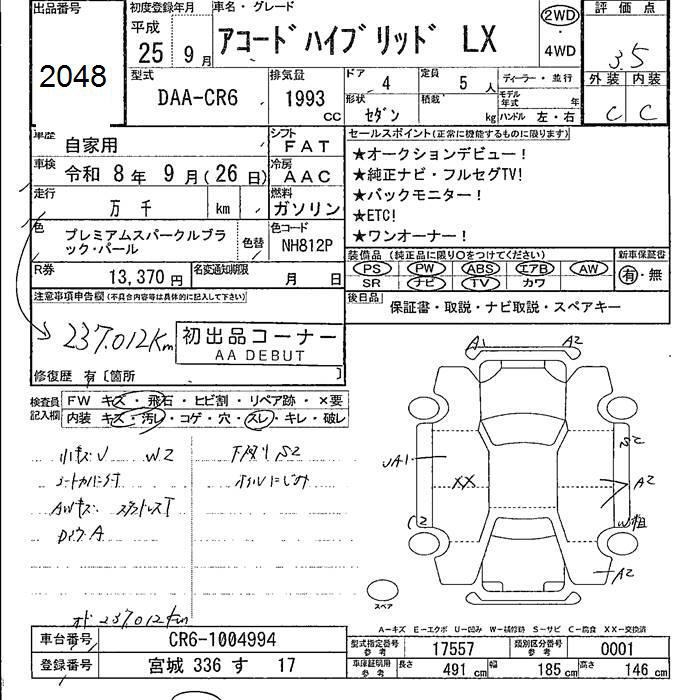 出品番号
2048
初度登録年月
平成
25 9月
車名・グレード
アコードハイブリッド LX
2WD
・
4WD
評価点
3.5
外装 内装
C C
型式
DAA-CR6
排気量
1993
cc
ドア 4
定員 5人
形状 セダン
積載 kg
ディーラー・並行
モデル年式 年
ハンドル 左・右
車歴 自家用
シフト FAT
車検 令和8年9月(26日)
冷房 AAC
走行 万 千 km
燃料 ガソリン
色 プレミアムスパークルブラック・パール
色替
色コード NH812P
R券 13,370円
名変通知期限 月 日
セールスポイント(正常に機能するものに限ります)
★オークションデビュー!
★純正ナビ・フルセグTV!
★バックモニター!
★ETC!
★ワンオーナー!
装備品 (純正品に限り○をつけてください)
PS PW ABS エアB AW
SR ナビ TV カワ
新車保証書
有・無
後日品 保証書・取説・ナビ取説・スペアキー
注意事項申告欄(不具合内容等は具体的に記入して下さい)
237,012Km
初出品コーナー
AA DEBUT
修復歴 有〔箇所 〕
検査員記入欄
FW キズ・飛石・ヒビ割・リペア跡・×要
内装 キズ・汚レ・コゲ・穴・スレ・キレ・破レ
小キズU W2
AWキズ スタッドレスT
下廻り S2
A1 A2
UA1
XX
S2
A2
C2
W
A2
スペア
オド 237,012Km
A-キズ E-エクボ U-凹み W-補修跡 S-サビ C-腐食 XX-交換済
車台番号 CR6-1004994
登録番号 宮城 336 す 17
型式指定番号 参考 17557
類別区分番号 参考 0001
車庫証明用 参考 長さ 491cm 幅 185cm 高さ 146cm